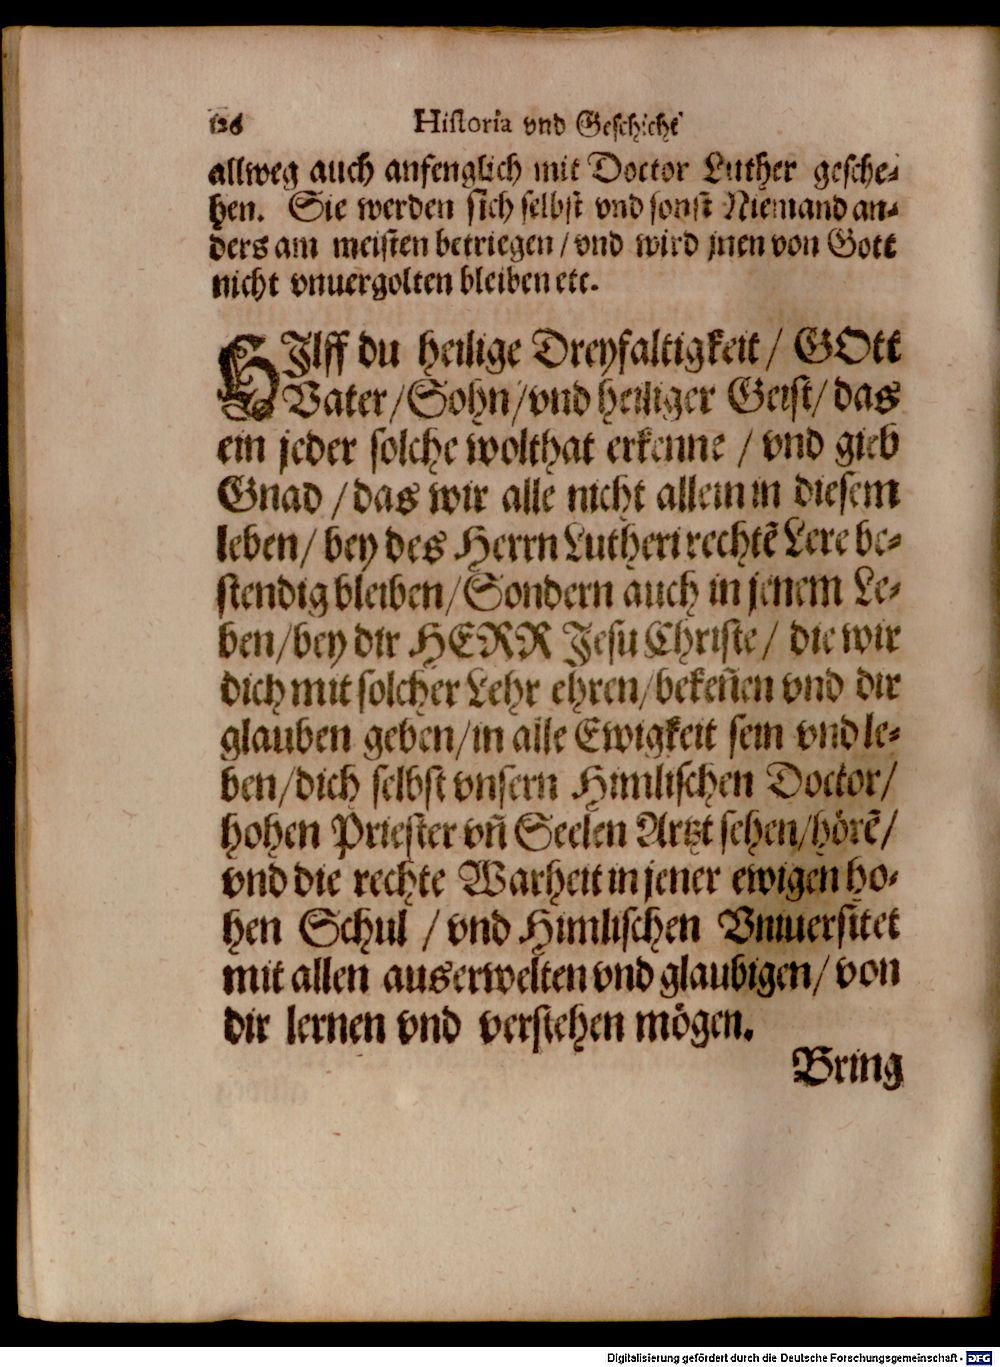 126 Historia vnd Geschicht
allweg auch anfenglich mit Doctor Luther gesche-
hen. Sie werden sich selbst vnd sonst Niemand an-
ders am meisten betriegen / vnd wird jnen von Gott
nicht vnuergolten bleiben etc.
HIlff du heilige Dreyfaltigkeit / GOtt
Vater / Sohn / vnd heiliger Geist / das
ein jeder solche wolthat erkenne / vnd gieb
Gnad / das wir alle nicht allein in diesem
leben / bey des Herrn Lutheri rechtẽ Lere be-
stendig bleiben / Sondern auch in jenem Le-
ben / bey dir HERR Jesu Christe / die wir
dich mit solcher Lehr ehren / bekeñen vnd dir
glauben geben / in alle Ewigkeit sein vnd le-
ben / dich selbst vnsern Himlischen Doctor /
hohen Priester vñ Seelen Artzt sehen / hörẽ /
vnd die rechte Warheit in jener ewigen ho-
hen Schul / vnd Himlischen Vniuersitet
mit allen auserwelten vnd glaubigen / von
dir lernen vnd verstehen mögen.
Bring
Digitalisierung gefördert durch die Deutsche Forschungsgemeinschaft - DFG